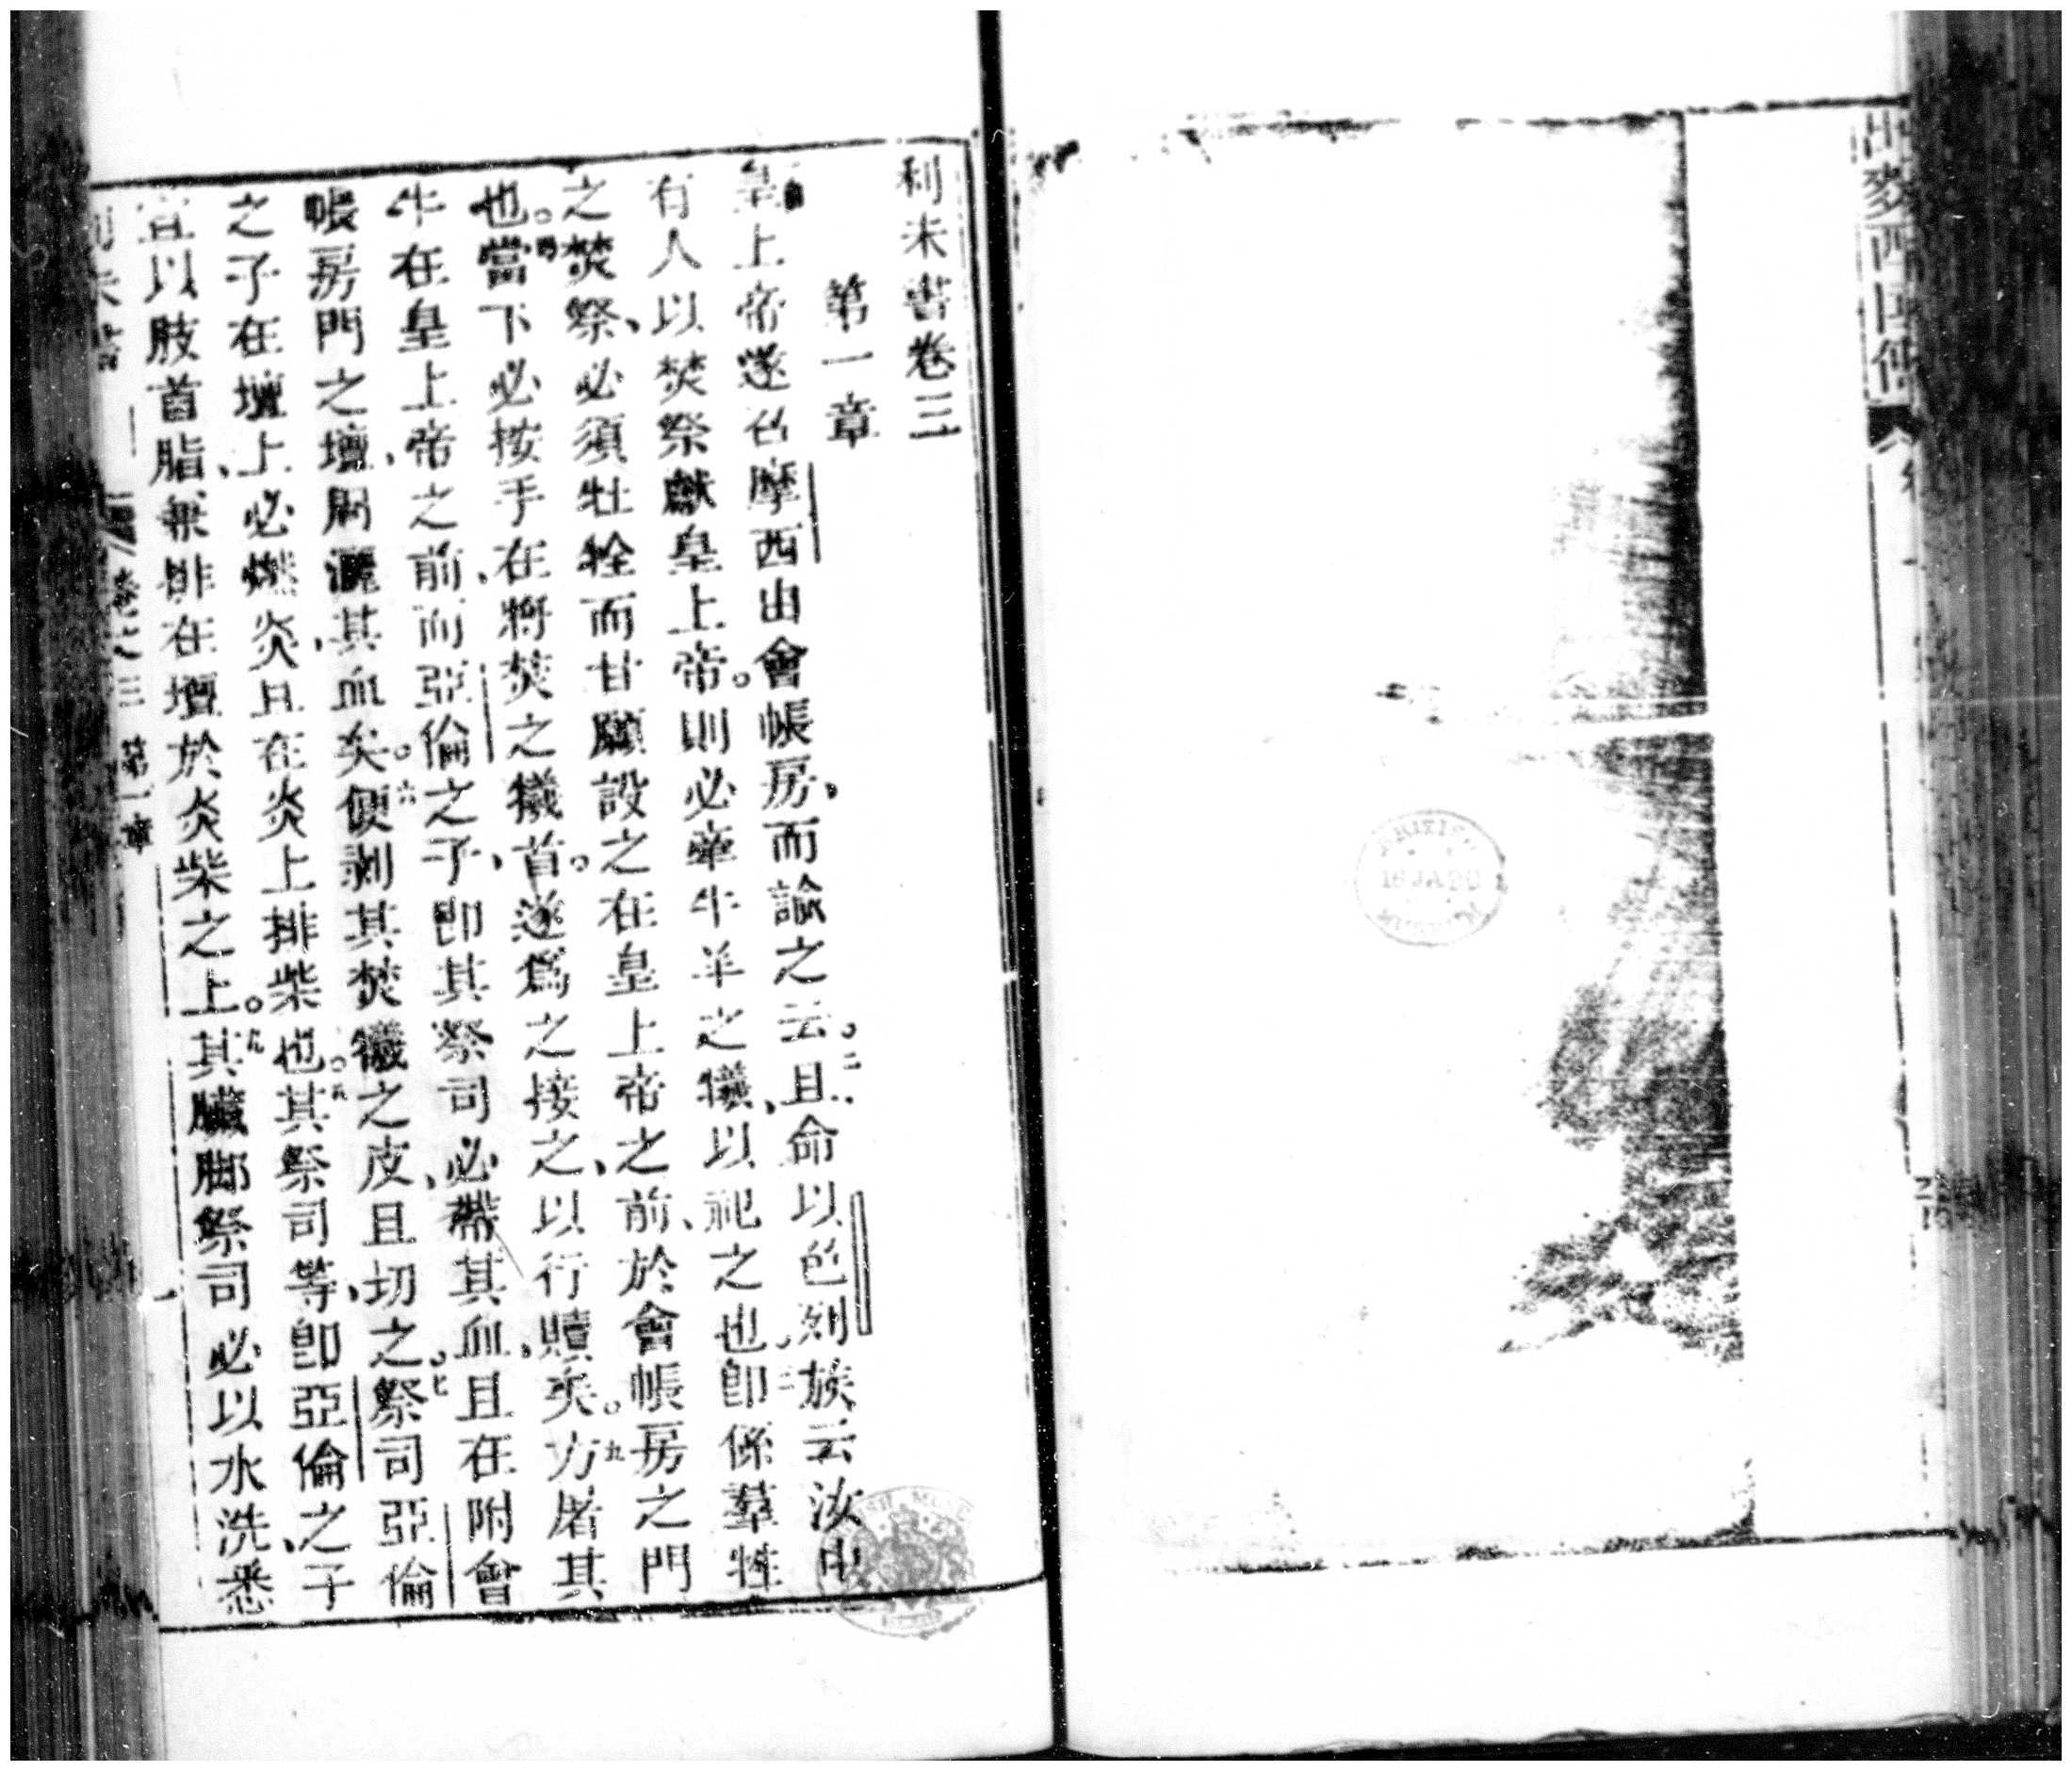 出麥西國傳
利未書卷三
第一章
皇上帝遂召摩西由會帳房、而諭之云。二且命以色列族云汝中
有人以焚祭獻皇上帝。則必牽牛羊之犧、以祀之也。三卽係羣牲
之焚祭、必須牡牷而甘願設之在皇上帝之前、於會帳房之門
也。四當下必按手在將焚之犧首。遂爲之接之、以行贖矣。五方屠其
牛在皇上帝之前、而亞倫之子、卽其祭司必帶其血、且在附會
帳房門之壇、周灑其血矣。六便剥其焚犧之皮、且切之。七祭司亞倫
之子在壇上必燃炎且在炎上排柴也。八其祭司等、卽亞倫之子、
宜以肢首脂、無排在壇於炎柴之上。九其臟脚祭司必以水洗悉
利未書 卷之三 第一章 一
BRITISH MUSEUM
16 JA 90